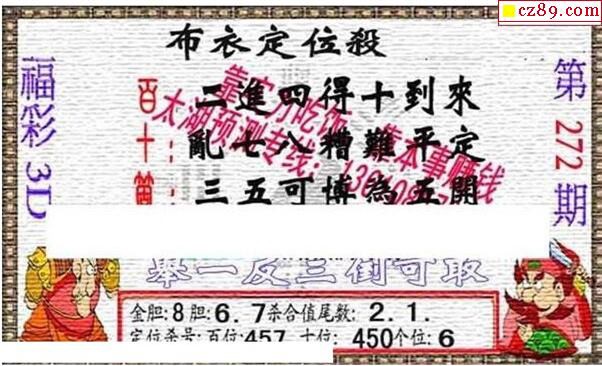 cz89.com
布衣定位殺
福彩3D
第272期
百: 二進四得十到來
十: 亂七八糟難平定
三五可博為五開
靠实力吃饭 靠本事赚钱
太湖预测专线: 13
舉一反三倒可取
金胆:8胆:6.7杀合值尾数:2.1.
定位杀号:百位:457 十位:450个位:6